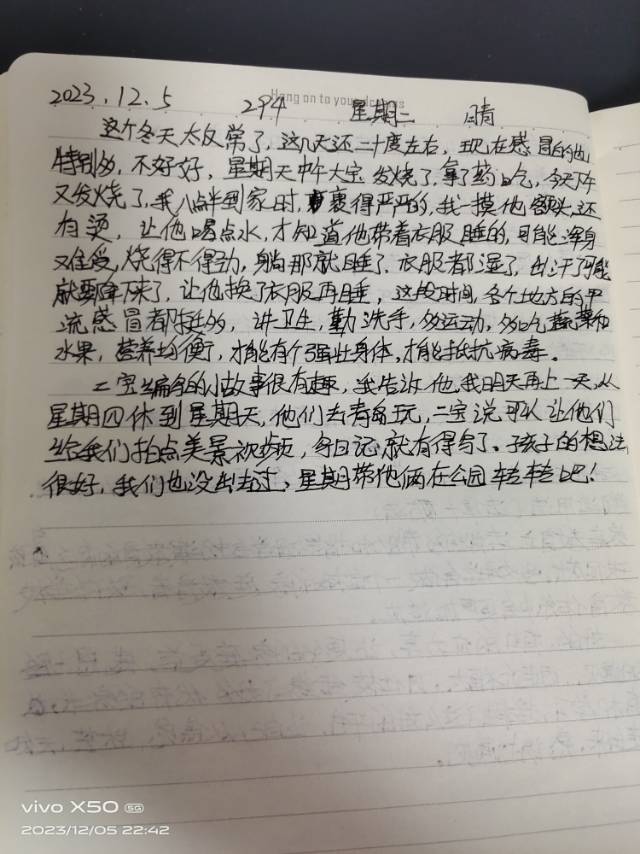 Hang on to your dreams
2023.12.5 294 星期二 晴
这个冬天太反常了，这几天还二十度左右，现在感冒的也
特别多，不好好，星期天中午大宝发烧了，拿了药吃，今天下午
又发烧了，我八点半到家时，裹得严严的，我一摸他额头，还
有烫，让他喝点水，才知道他带着衣服睡的，可能浑身
难受，烧得不得劲，躺那就睡了，衣服都湿了，出汗了可能
就要降下来了，让他换了衣服再睡，这段时间，各个地方的甲
流感冒都挺多的，讲卫生，勤洗手，多运动，多吃蔬菜和
水果，营养均衡，才能有个强壮身体，才能抵抗病毒。
二宝编的小故事很有趣，我告诉他，我明天再上一天，从
星期四休到星期天，他们去青岛玩，二宝说可以让他们
给我们拍点美景视频，每日记就有得写了。孩子的想法
很好，我们也没出去过，星期带他俩在公园转转吧！
vivo X50 5G
2023/12/05 22:42